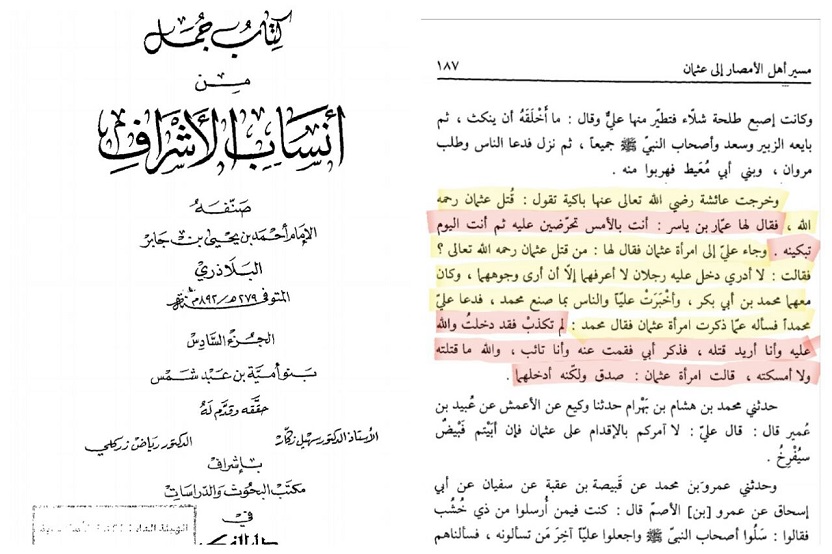 كتاب جمل
من
أنساب الأشراف
صنفه
الإمام أحمد بن يحيى بن جابر
البلاذري
المتوفى ٢٧٩هـ/٨٩٢م
الجزء السادس
بنو أمية بن عبد شمس
حققه وقدم له
الأستاذ الدكتور سهيل زكار
الدكتور رياض زركلي
بإشراف
مكتب البحوث والدراسات
في
مسير أهل الأمصار إلى عثمان
١٨٧
وكانت إصبع طلحة شلّاء فتطيّر منها عليٌّ وقال : ما أَخْلَقَهُ أن ينكث ، ثم
بايعه الزبير وسعد وأصحاب النبيّ ﷺ جميعاً ، ثم نزل فدعا الناس وطلب
مروان ، وبني أبي مُعَيط فهربوا منه .
وخرجت عائشة رضي الله تعالى عنها باكية تقول : قُتل عثمان رحمه
الله ، فقال لها عمّار بن ياسر : أنت بالأمس تحرّضين عليه ثم أنت اليوم
تبكينه . وجاء عليّ إلى امرأة عثمان فقال لها : من قتل عثمان رحمه الله تعالى ؟
فقالت : لا أدري دخل عليه رجلان لا أعرفهما إلّا أن أرى وجوههما ، وكان
معهما محمد بن أبي بكر ، وأَخْبَرَتْ عليّاً والناس بما صنع محمد ، فدعا عليّ
محمداً فسأله عمّا ذكرت امرأة عثمان فقال محمد : لم تكذبْ فقد دخلتُ والله
عليه وأنا أريد قتله ، فذكر أبي فقمت عنه وأنا تائب ، والله ما قتلته
ولا أمسكته ، قالت امرأة عثمان : صدق ولكنه أدخلهما .
حدثني محمد بن هشام بن بَهْرام حدثنا وكيع عن الأعمش عن عُبيد بن
عُمير قال : قال عليّ : لا آمركم بالإقدام على عثمان فإن أبَيْتم فَبَيْضٌ
سيُفْرِخُ .
وحدثني عمرو بن محمد عن قَبيصة بن عقبة عن سفيان عن أبي
إسحاق عن عمرو [بن] الأصمّ قال : كنت فيمن أُرسلوا من ذي خُشُب
فقالوا : سَلُوا أصحاب النبيّ ﷺ واجعلوا عليّاً آخِرَ مَن تسألونه ، فسألناهم